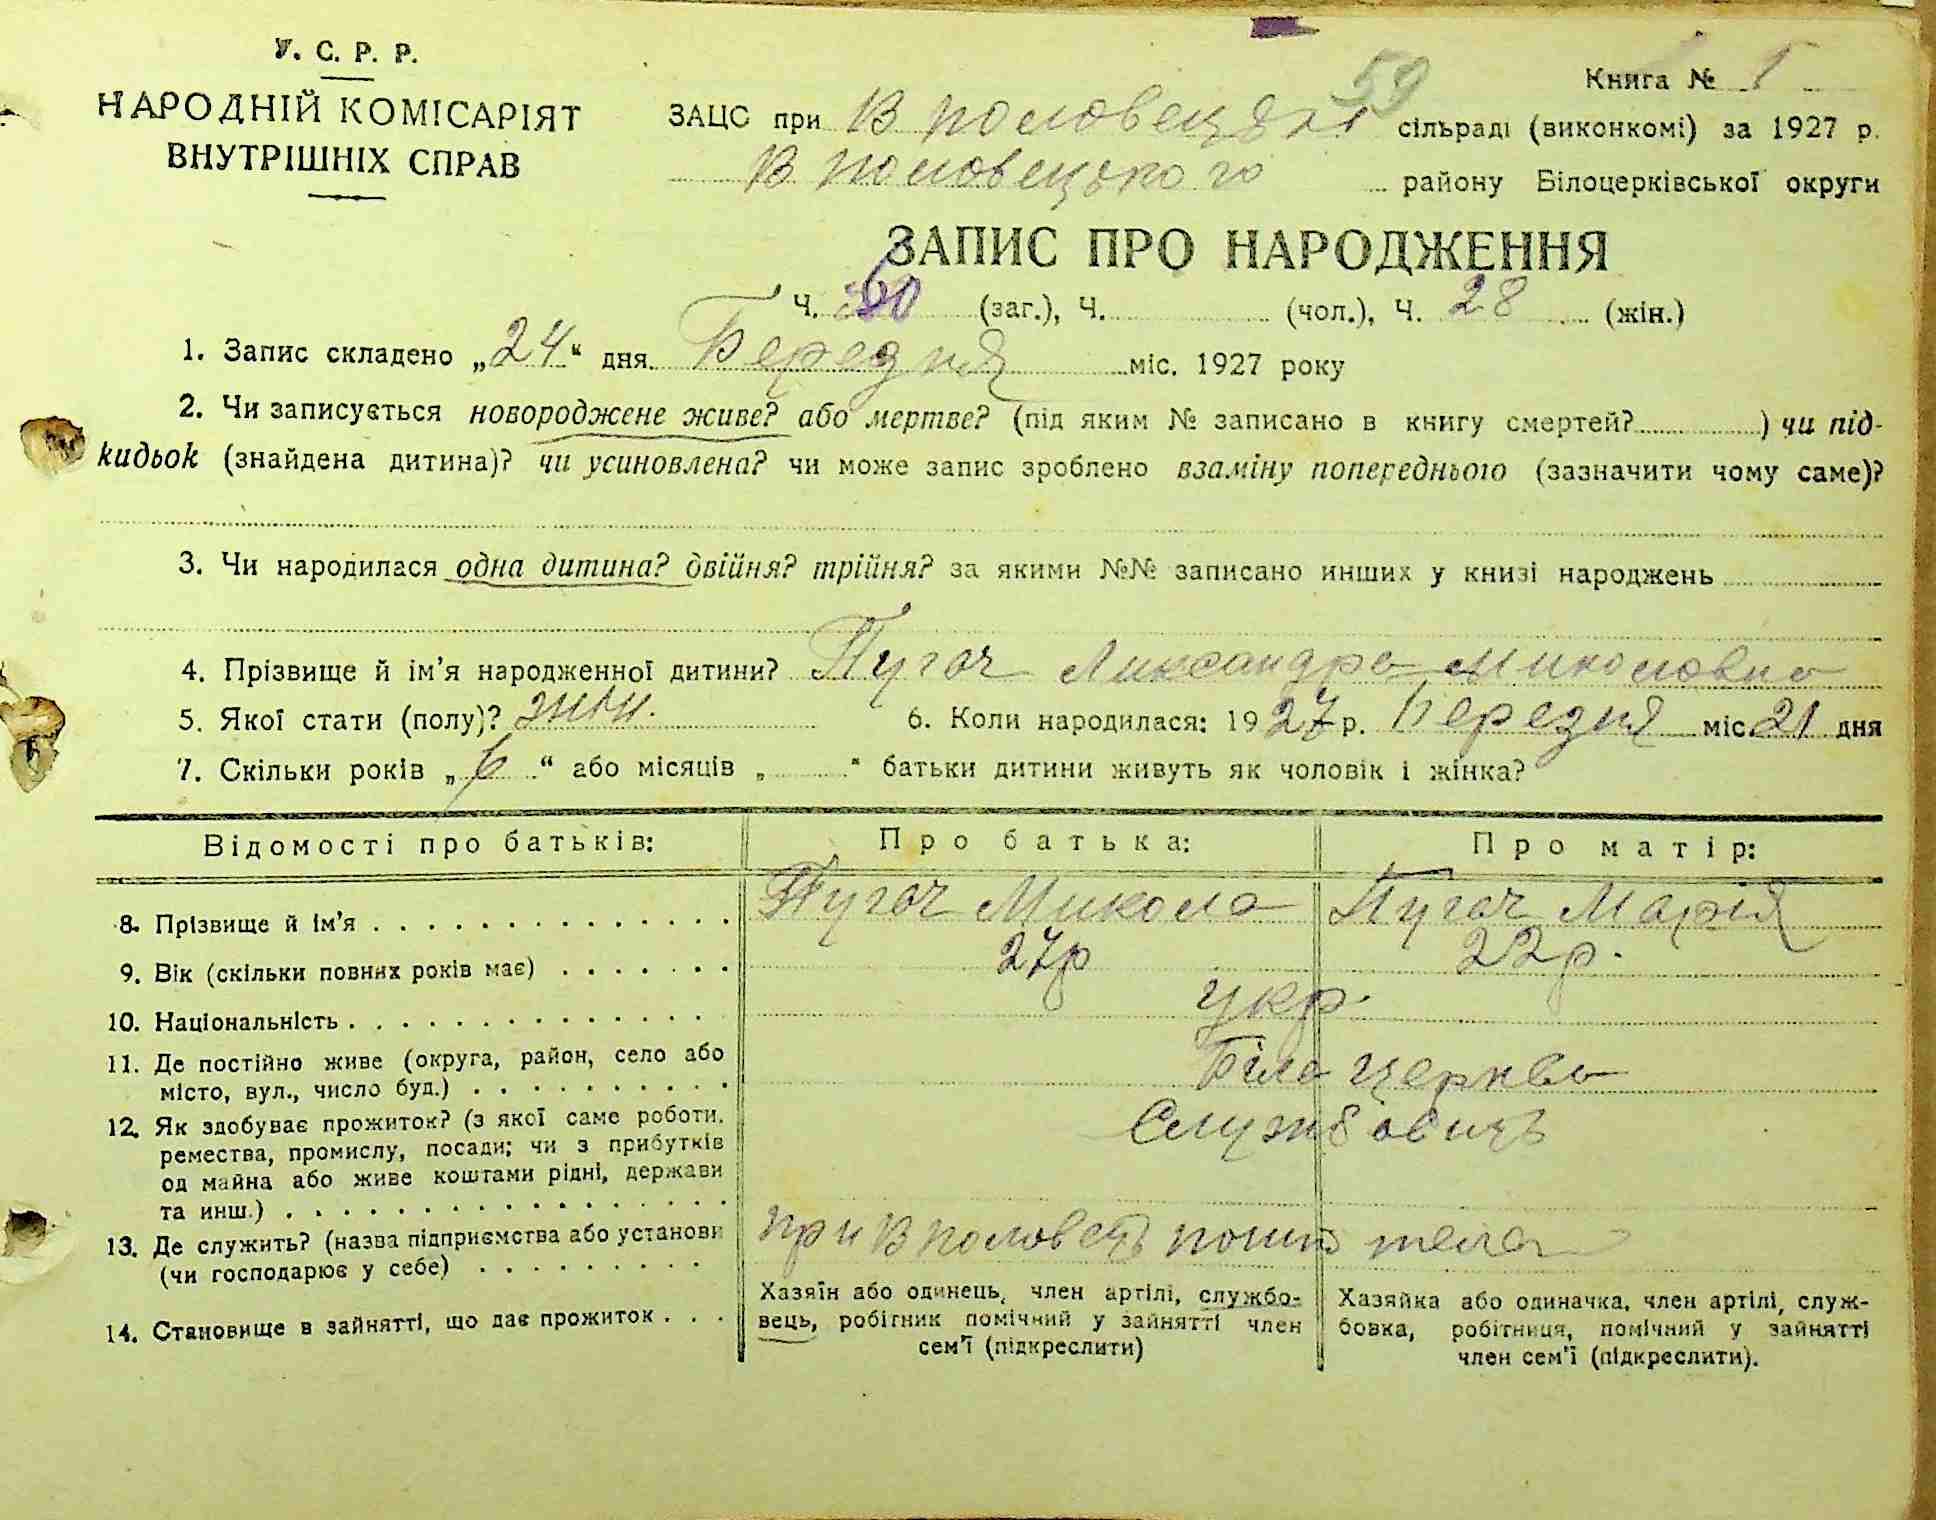 У. С. Р. Р.
НАРОДНІЙ КОМІСАРІЯТ
ВНУТРІШНІХ СПРАВ
59
Книга № 1
ЗАЦС при В Половецькі сільраді (виконкомі) за 1927 р.
В Половецького району Білоцерківської округи
ЗАПИС ПРО НАРОДЖЕННЯ
Ч. 60 (заг.), Ч. (чол.), Ч. 28 (жін.)
1. Запис складено „24“ дня Березня міс. 1927 року
2. Чи записується новороджене живе? або мертве? (під яким № записано в книгу смертей? ) чи під-
кидьок (знайдена дитина)? чи усиновлена? чи може запис зроблено взаміну попереднього (зазначити чому саме)?
3. Чи народилася одна дитина? двійня? трійня? за якими №№ записано инших у книзі народжень
4. Прізвище й ім’я народженної дитини? Пугач Александра Миколовна
5. Якої стати (полу)? жін. 6. Коли народилася: 1927 р. Березня міс. 21 дня
7. Скільки років „6“ або місяців „ “ батьки дитини живуть як чоловік і жінка?
Відомості про батьків: Про батька: Про матір:
8. Прізвище й ім’я Пугач Микола Пугач Марія
9. Вік (скільки повних років має) 27р 22р.
10. Національність укр.
11. Де постійно живе (округа, район, село або
місто, вул., число буд.) Біла Церква
12. Як здобуває прожиток? (з якої саме роботи,
ремества, промислу, посади; чи з прибутків
од майна або живе коштами рідні, держави
та инш.) Службовець
13. Де служить? (назва підприємства або установи
(чи господарює у себе) при В Половец
14. Становище в зайнятті, що дає прожиток
Хазяїн або одинець, член артілі, службо-
вець, робігник помічний у зайнятті член
сем’ї (підкреслити)
Хазяйка або одиначка, член артілі, служ-
бовка, робітниця, помічний у зайнятті
член сем’ї (підкреслити).